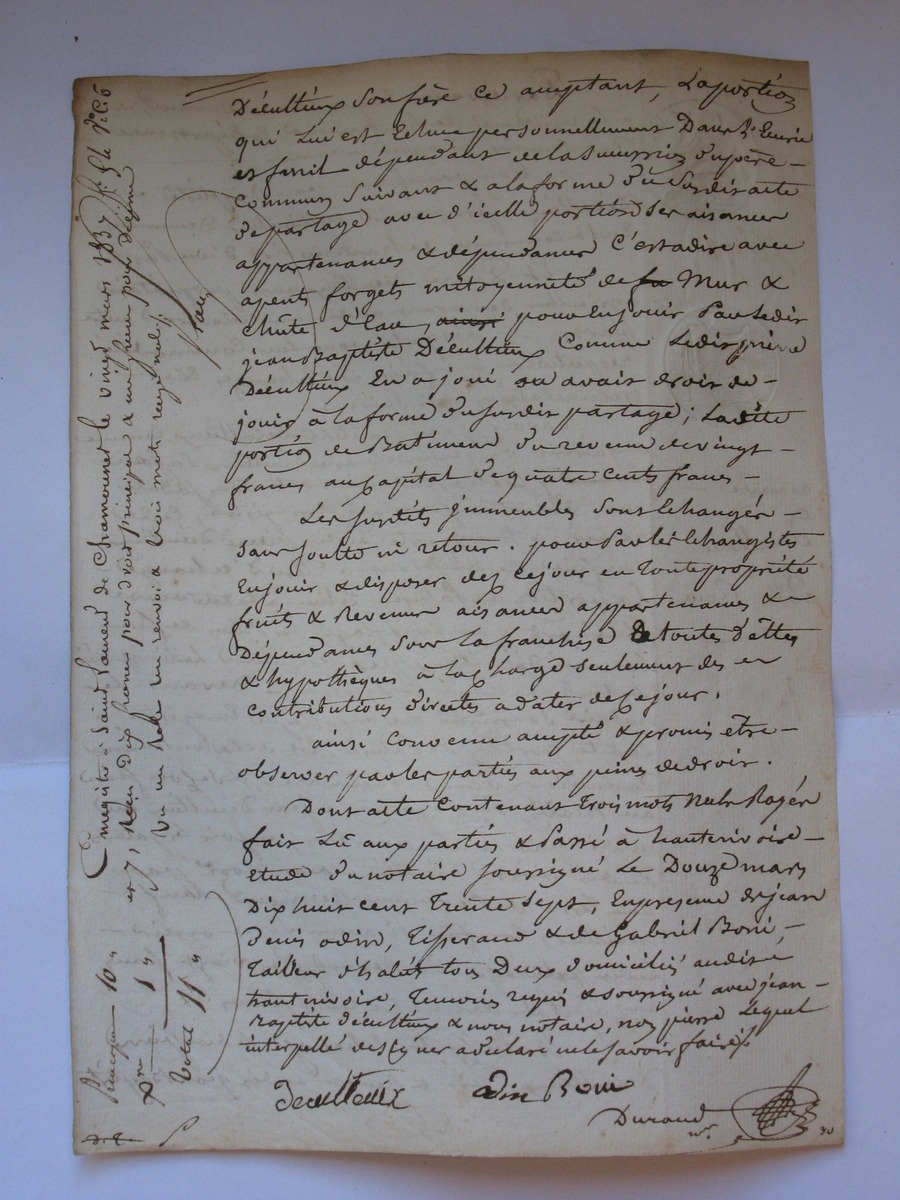 Décultieux son frère ce acceptant, la portion
qui lui est échue personnellement dans
et fenil dépendant de la succession du père
commun suivant & a la forme du susdit acte
de partage avec d'icelle portion ses aisances
appartenances & dépendances c'estadire avec
apents forgets mitoyenneté de mur &
chûte d'eau, ainsi pour en jouir par ledit
jean Baptiste Décultieux comme ledit pierre
Décultieux en a joui ou avait droit de
jouir à la forme du susdit partage ; ladite
portion de Batiment du revenu de vingt
francs au capital de quatre cents francs
Les susdits jmmeubles sont échangés
sans soulte ni retour. pour par les échangistes
en jouir & disposer dez ce jour en toute propriété
fruits & revenus aisances appartenances &
Dépendances sous la franchise de toutes dettes
& hypothèques à la charge seulement des
contributions directes a dater de ce jour.
ainsi convenu accepté & promis etre
observer par les parties aux peines de droit.
Dont acte contenant trois mots nuls Rayés
fait Lû aux parties & Passé à hauterivoire
etude du notaire soussigné Le Douze mars
Dix huit cent trente sept, en presence de jean
Denis odin, Tisserand & de Gabriel Boni,
Tailleur d'habits tous Deux domiciliés audit
hauterivoire, Temoins requis & soussignés avec jean
Baptiste décultieux & nous notaire, non pierre Lequel
interpellé de signer a déclaré ne le savoir faire
decultieux
odin Boni
Durand
nre.
Enregistré à Saint Laurent de Chamousset le vingt mars 1837, f. 54
et 7, Reçu dix francs pour droit principal & un franc pour déjme
Vu un Rôle un renvoi & trois mots rayés nuls
Principal 10 "
Dme 1 "
Total 11 "